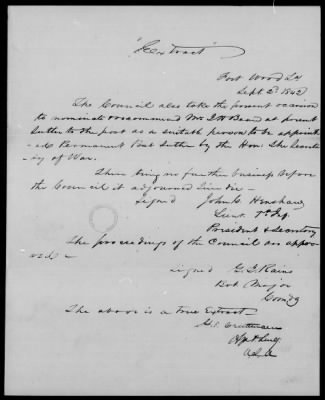 "Extract"
Fort Wood La
Sept 2d 1842
The Council also take the present occasion
to nominate & recommend Mr J W Bead at present
Sutler to the post as a suitable person to be appoint-
-ed Permanent Post Sutler by the Hon: the Secreta
ry of War.
There being no further business before
the Council it adjourned Sine Die -
signed John C Henshaw
Lieut. 7th Inf.
President & Secretary
The proceedings of the Council are appro-
ved -
signed G. J. Rains
Bvt Major
Comdg
The above is a true Extract -